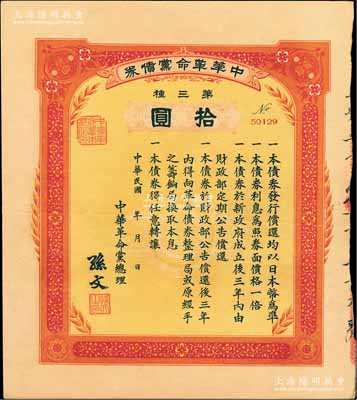 中華革命黨債券
第三種
拾圓
No
50129
一本債券發行償還均以日本幣為準
一本債券利息為照券面價格一倍
一本債券於新政府成立後三年內由
財政部定期公告償還
一本債券於財政部公告償還後三年
內得向革命債券整理局或原經手
之籌餉局換取本息
一本債券得任意轉讓
中華民國 年 月 日
中華革命黨總理
孫文
上海陽明拍賣
上海陽明拍賣